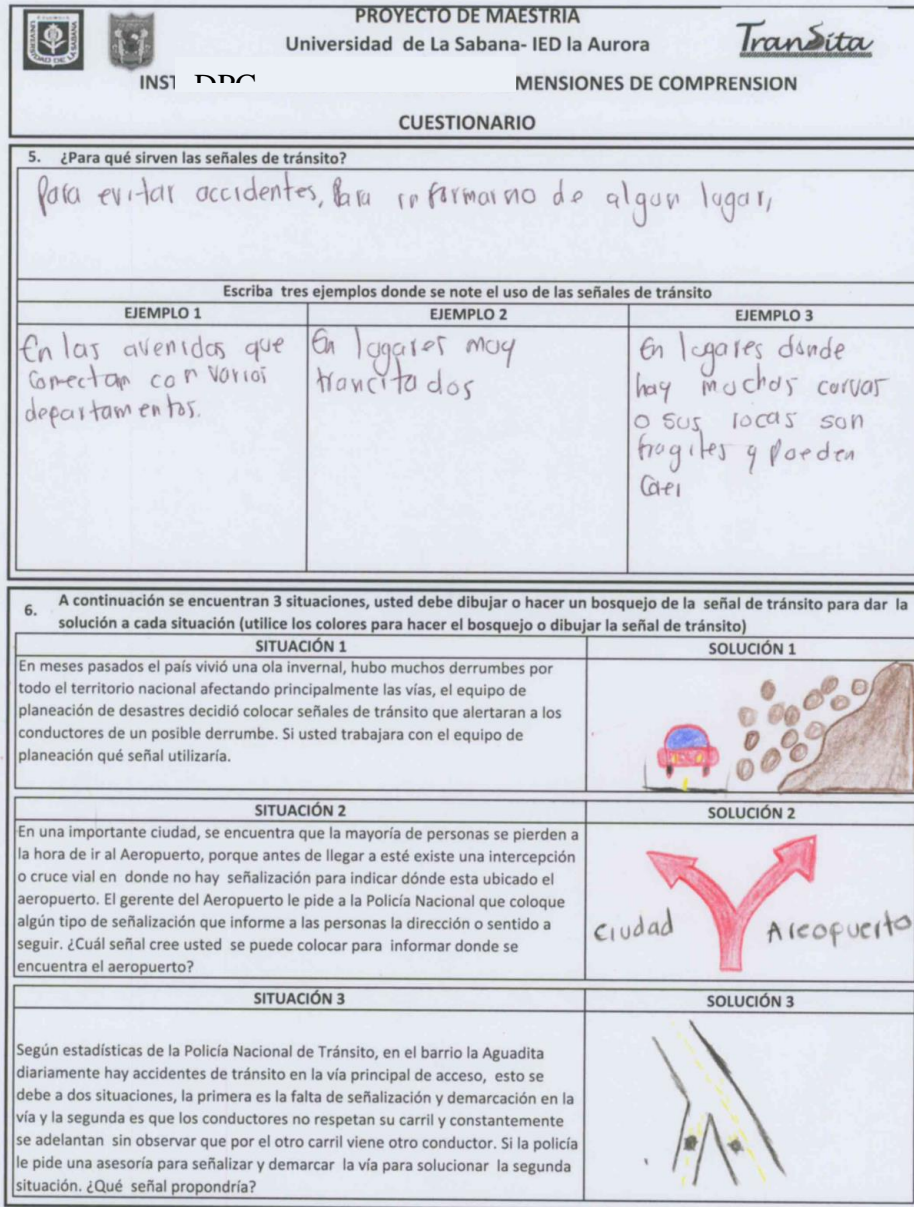 PROYECTO DE MAESTRIA
Universidad de La Sabana- IED la Aurora
TranSita
INST DPG MENSIONES DE COMPRENSION
CUESTIONARIO
5. ¿Para qué sirven las señales de tránsito?
Para evitar accidentes, Para informarno de algun lugar,
Escriba tres ejemplos donde se note el uso de las señales de tránsito
EJEMPLO 1
En las avenidas que
conectan con varios
departamentos.
EJEMPLO 2
En lugares muy
trancitados
EJEMPLO 3
En lugares donde
hay muchas curvas
o sus rocas son
fragiles y pueden
caer
6. A continuación se encuentran 3 situaciones, usted debe dibujar o hacer un bosquejo de la señal de tránsito para dar la
solución a cada situación (utilice los colores para hacer el bosquejo o dibujar la señal de tránsito)
SITUACIÓN 1
SOLUCIÓN 1
En meses pasados el país vivió una ola invernal, hubo muchos derrumbes por
todo el territorio nacional afectando principalmente las vías, el equipo de
planeación de desastres decidió colocar señales de tránsito que alertaran a los
conductores de un posible derrumbe. Si usted trabajara con el equipo de
planeación qué señal utilizaría.
SITUACIÓN 2
SOLUCIÓN 2
En una importante ciudad, se encuentra que la mayoría de personas se pierden a
la hora de ir al Aeropuerto, porque antes de llegar a esté existe una intercepción
o cruce vial en donde no hay señalización para indicar dónde esta ubicado el
aeropuerto. El gerente del Aeropuerto le pide a la Policía Nacional que coloque
algún tipo de señalización que informe a las personas la dirección o sentido a
seguir. ¿Cuál señal cree usted se puede colocar para informar donde se
encuentra el aeropuerto?
Ciudad
Areopuerto
SITUACIÓN 3
SOLUCIÓN 3
Según estadísticas de la Policía Nacional de Tránsito, en el barrio la Aguadita
diariamente hay accidentes de tránsito en la vía principal de acceso, esto se
debe a dos situaciones, la primera es la falta de señalización y demarcación en la
vía y la segunda es que los conductores no respetan su carril y constantemente
se adelantan sin observar que por el otro carril viene otro conductor. Si la policía
le pide una asesoría para señalizar y demarcar la vía para solucionar la segunda
situación. ¿Qué señal propondría?